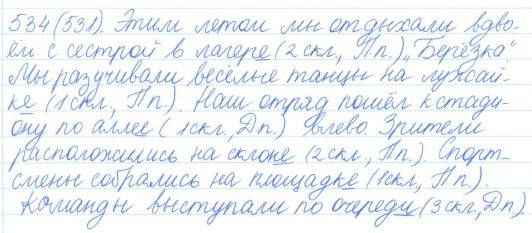 534(531). Этим летом мы отдыхали вдво-
ём с сестрой в лагере (2 скл., П.п.) „Берёзка".
Мы разучивали весёлые танцы на лужай-
ке (1 скл., П.п.). Наш отряд пошёл к стади-
ону по аллее (1 скл., Д.п.) влево. Зрители
расположились на склоне (2 скл., П.п.). Спорт-
смены собрались на площадке (1 скл., П.п.).
Команды выступали по очереди (3 скл., Д.п.).